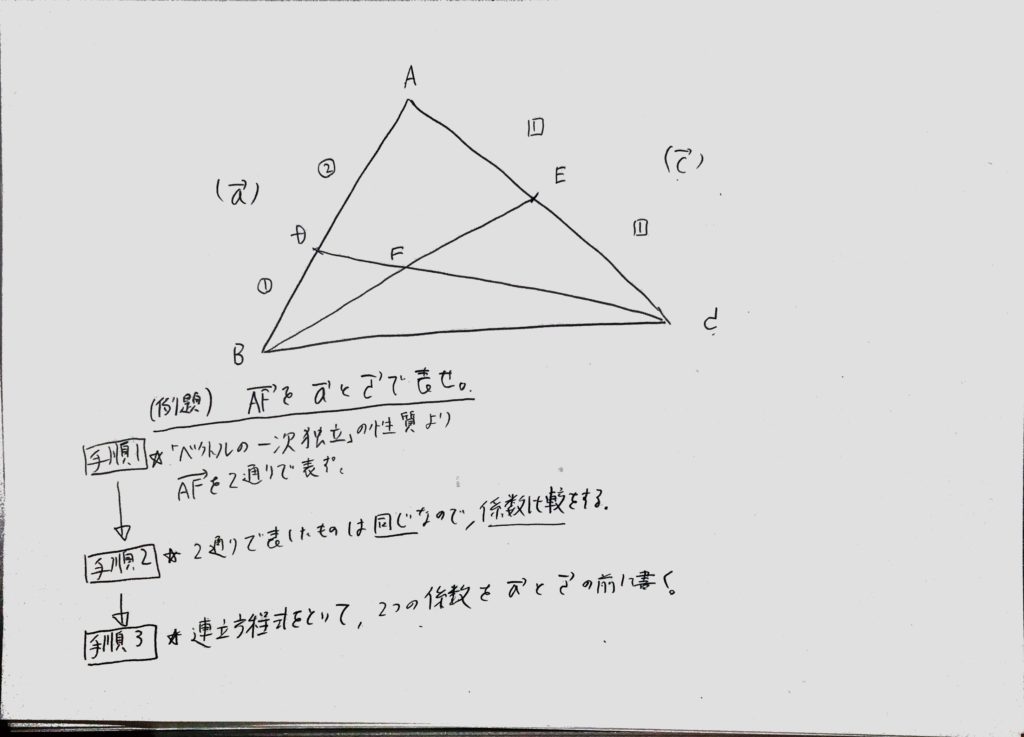 A
1
(c⃗)
E
②
(a⃗)
D
F
1
①
C
B
(例題) AF⃗をa⃗とc⃗で表せ。
手順1 ☆「ベクトルの一次独立」の性質より
AF⃗を2通りで表す。
手順2 ☆ 2通りで表したものは同じなので,係数比較をする.
手順3 ☆ 連立方程式をといて, 2つの係数をa⃗とc⃗の前に書く。